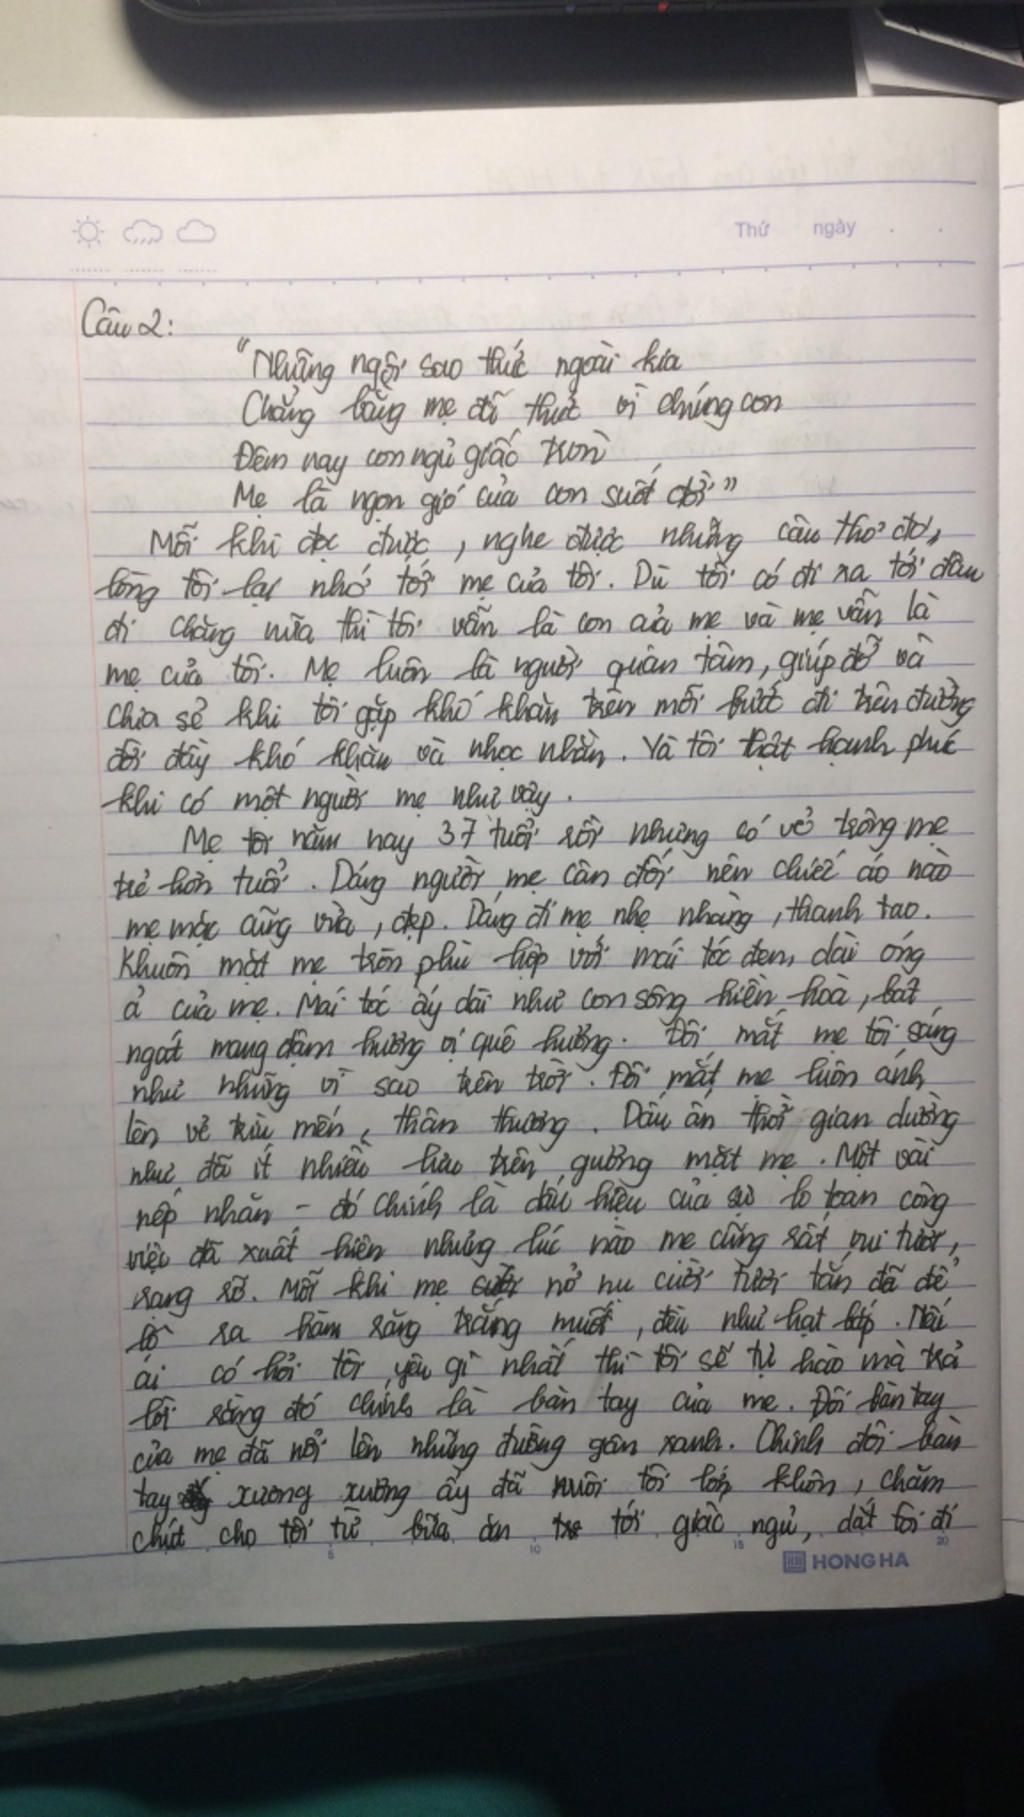 Thứ ngày
Câu 2:
"Những ngôi sao thức ngoài kia
Chẳng bằng mẹ đã thức vì chúng con
Đêm nay con ngủ giấc tròn
Mẹ là ngọn gió của con suốt đời"
Mỗi khi đọc được, nghe được những câu thơ đó,
lòng tôi lại nhớ tới mẹ của tôi. Dù tôi có đi xa tới đâu
đi chăng nữa thì tôi vẫn là con của mẹ và mẹ vẫn là
mẹ của tôi. Mẹ luôn là người quan tâm, giúp đỡ và
chia sẻ khi tôi gặp khó khăn trên mỗi bước đi trên đường
đời đầy khó khăn và nhọc nhằn. Và tôi thật hạnh phúc
khi có một người mẹ như vậy.
Mẹ tôi năm nay 37 tuổi rồi nhưng có vẻ trông mẹ
trẻ hơn tuổi. Dáng người mẹ cân đối nên chiếc áo nào
mẹ mặc cũng vừa, đẹp. Dáng đi mẹ nhẹ nhàng, thanh tao.
Khuôn mặt mẹ tròn phù hợp với mái tóc đen, dài óng
ả của mẹ. Mái tóc ấy dài như con sông hiền hoà, bát
ngát mang đậm hương vị quê hương. Đôi mắt mẹ tôi sáng
như những vì sao trên trời. Đôi mắt mẹ luôn ánh
lên vẻ trìu mến, thân thương. Dấu ấn thời gian dường
như đã ít nhiều hằn trên gương mặt mẹ. Một vài
nếp nhăn - đó chính là dấu hiệu của sự lo toan công
việc đã xuất hiện nhưng lúc nào mẹ cũng rất vui tươi,
rạng rỡ. Mỗi khi mẹ nở nụ cười tươi tắn đã để
lộ ra hàm răng trắng muốt, đều như hạt bắp. Nếu
ai có hỏi tôi yêu gì nhất thì tôi sẽ tự hào mà trả
lời rằng đó chính là bàn tay của mẹ. Đôi bàn tay
của mẹ đã nổi lên những đường gân xanh. Chính đôi bàn
tay xương xương ấy đã nuôi tôi lớn khôn, chăm
chút cho tôi từ bữa ăn tới giấc ngủ, dắt tôi đi
5 10 15 20
HONG HA